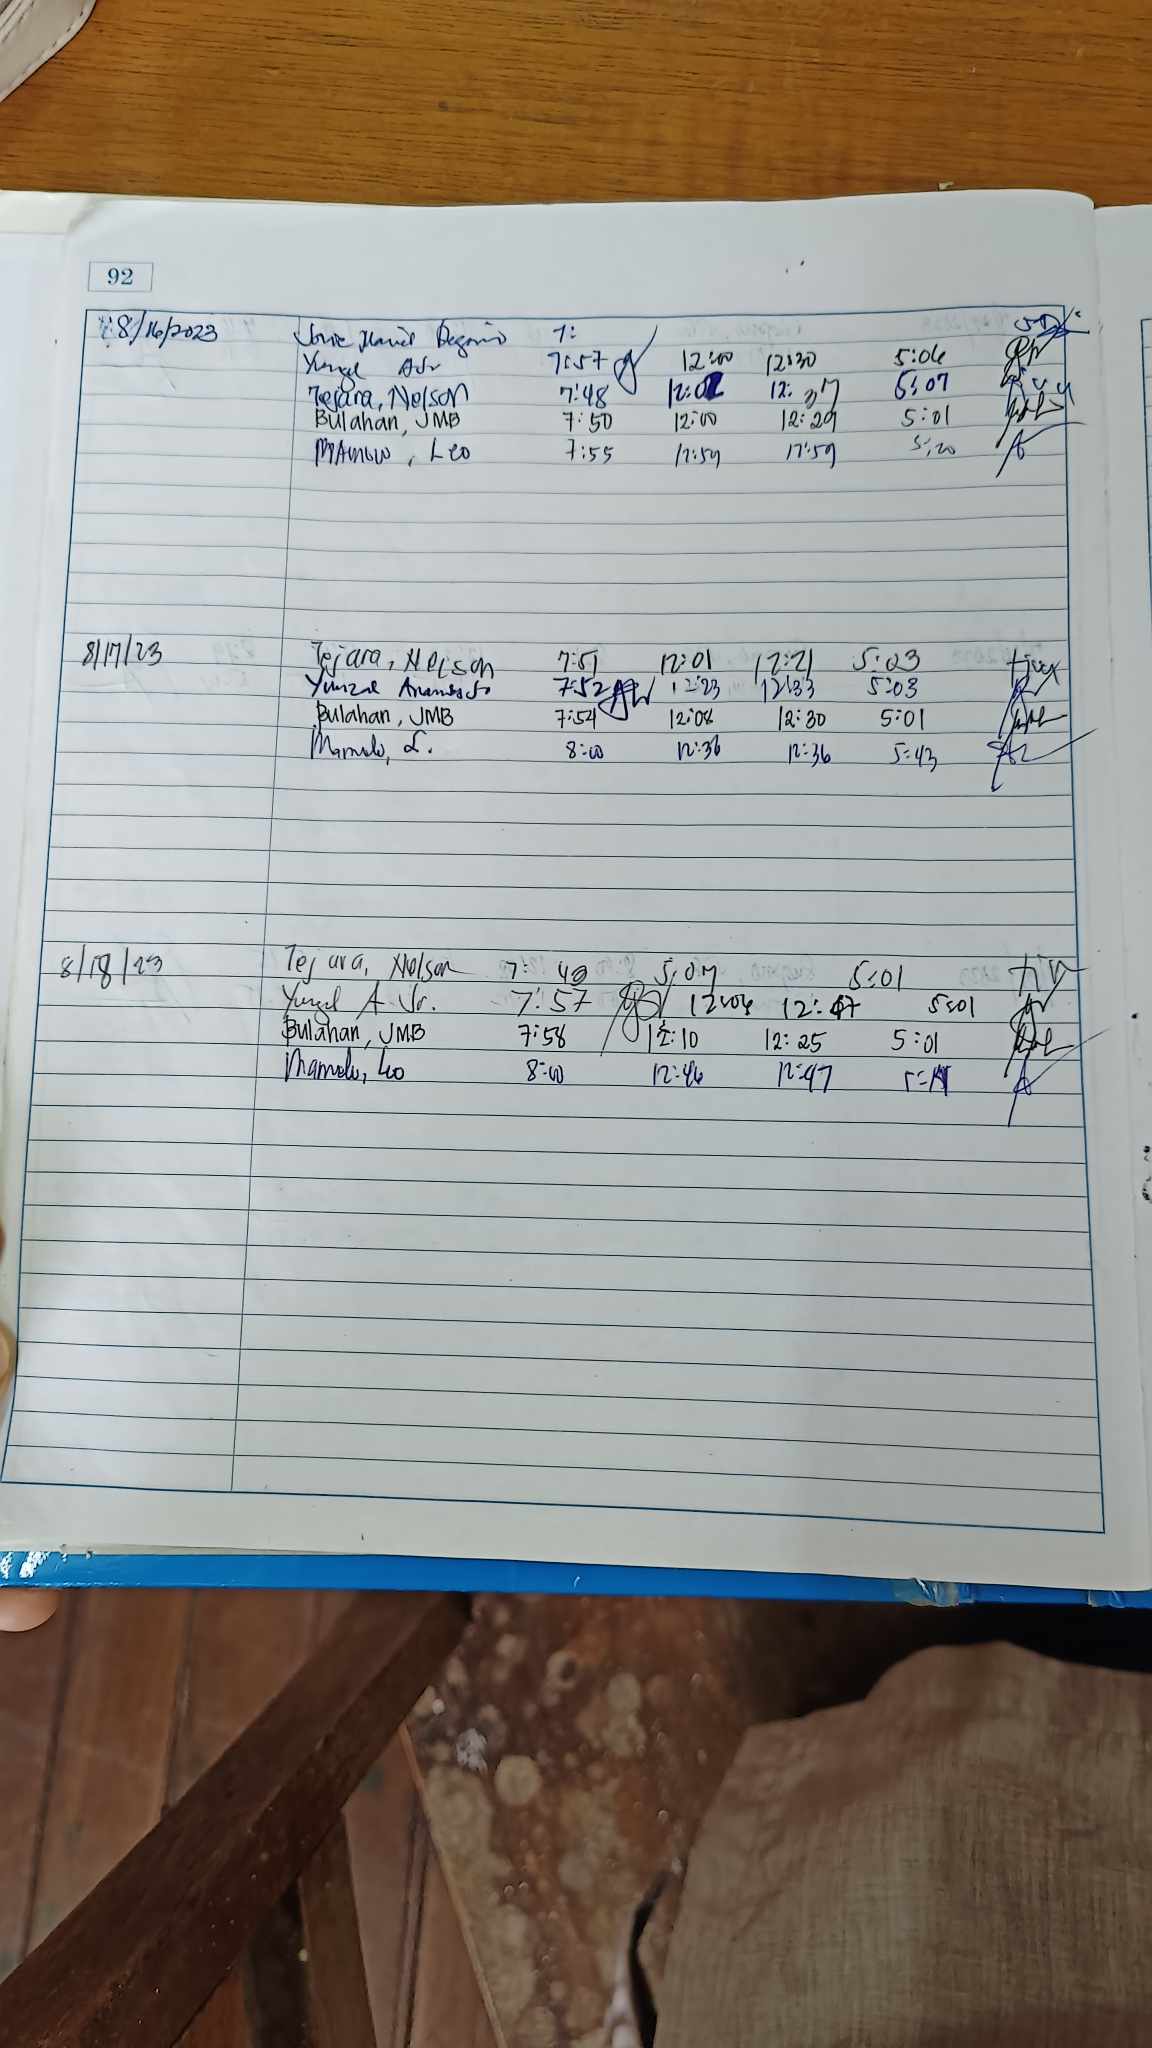 92
8/16/2023 7:
Yunzal A Jr 7:57 12:00 12:30 5:06
Tejara, Nelson 7:48 12:02 12: 5:07
Bulahan, JMB 7:50 12:00 12:29 5:01
Mamolo, Leo 7:55 12:59 12:59 5:20
8/17/23 Tejara, Nelson 7:51 12:01 12:21 5:23
Yunzal 7:52 12:23 12:33 5:03
Bulahan, JMB 7:54 12:08 12:30 5:01
Mamolo, L. 8:00 12:36 12:36 5:43
8/18/23 Tejara, Nelson 7:49 5:07 5:01
Yunzal A Jr. 7:57 12:06 12:47 5:01
Bulahan, JMB 7:58 12:10 12:25 5:01
Mamolo, Leo 8:00 12:46 12:47